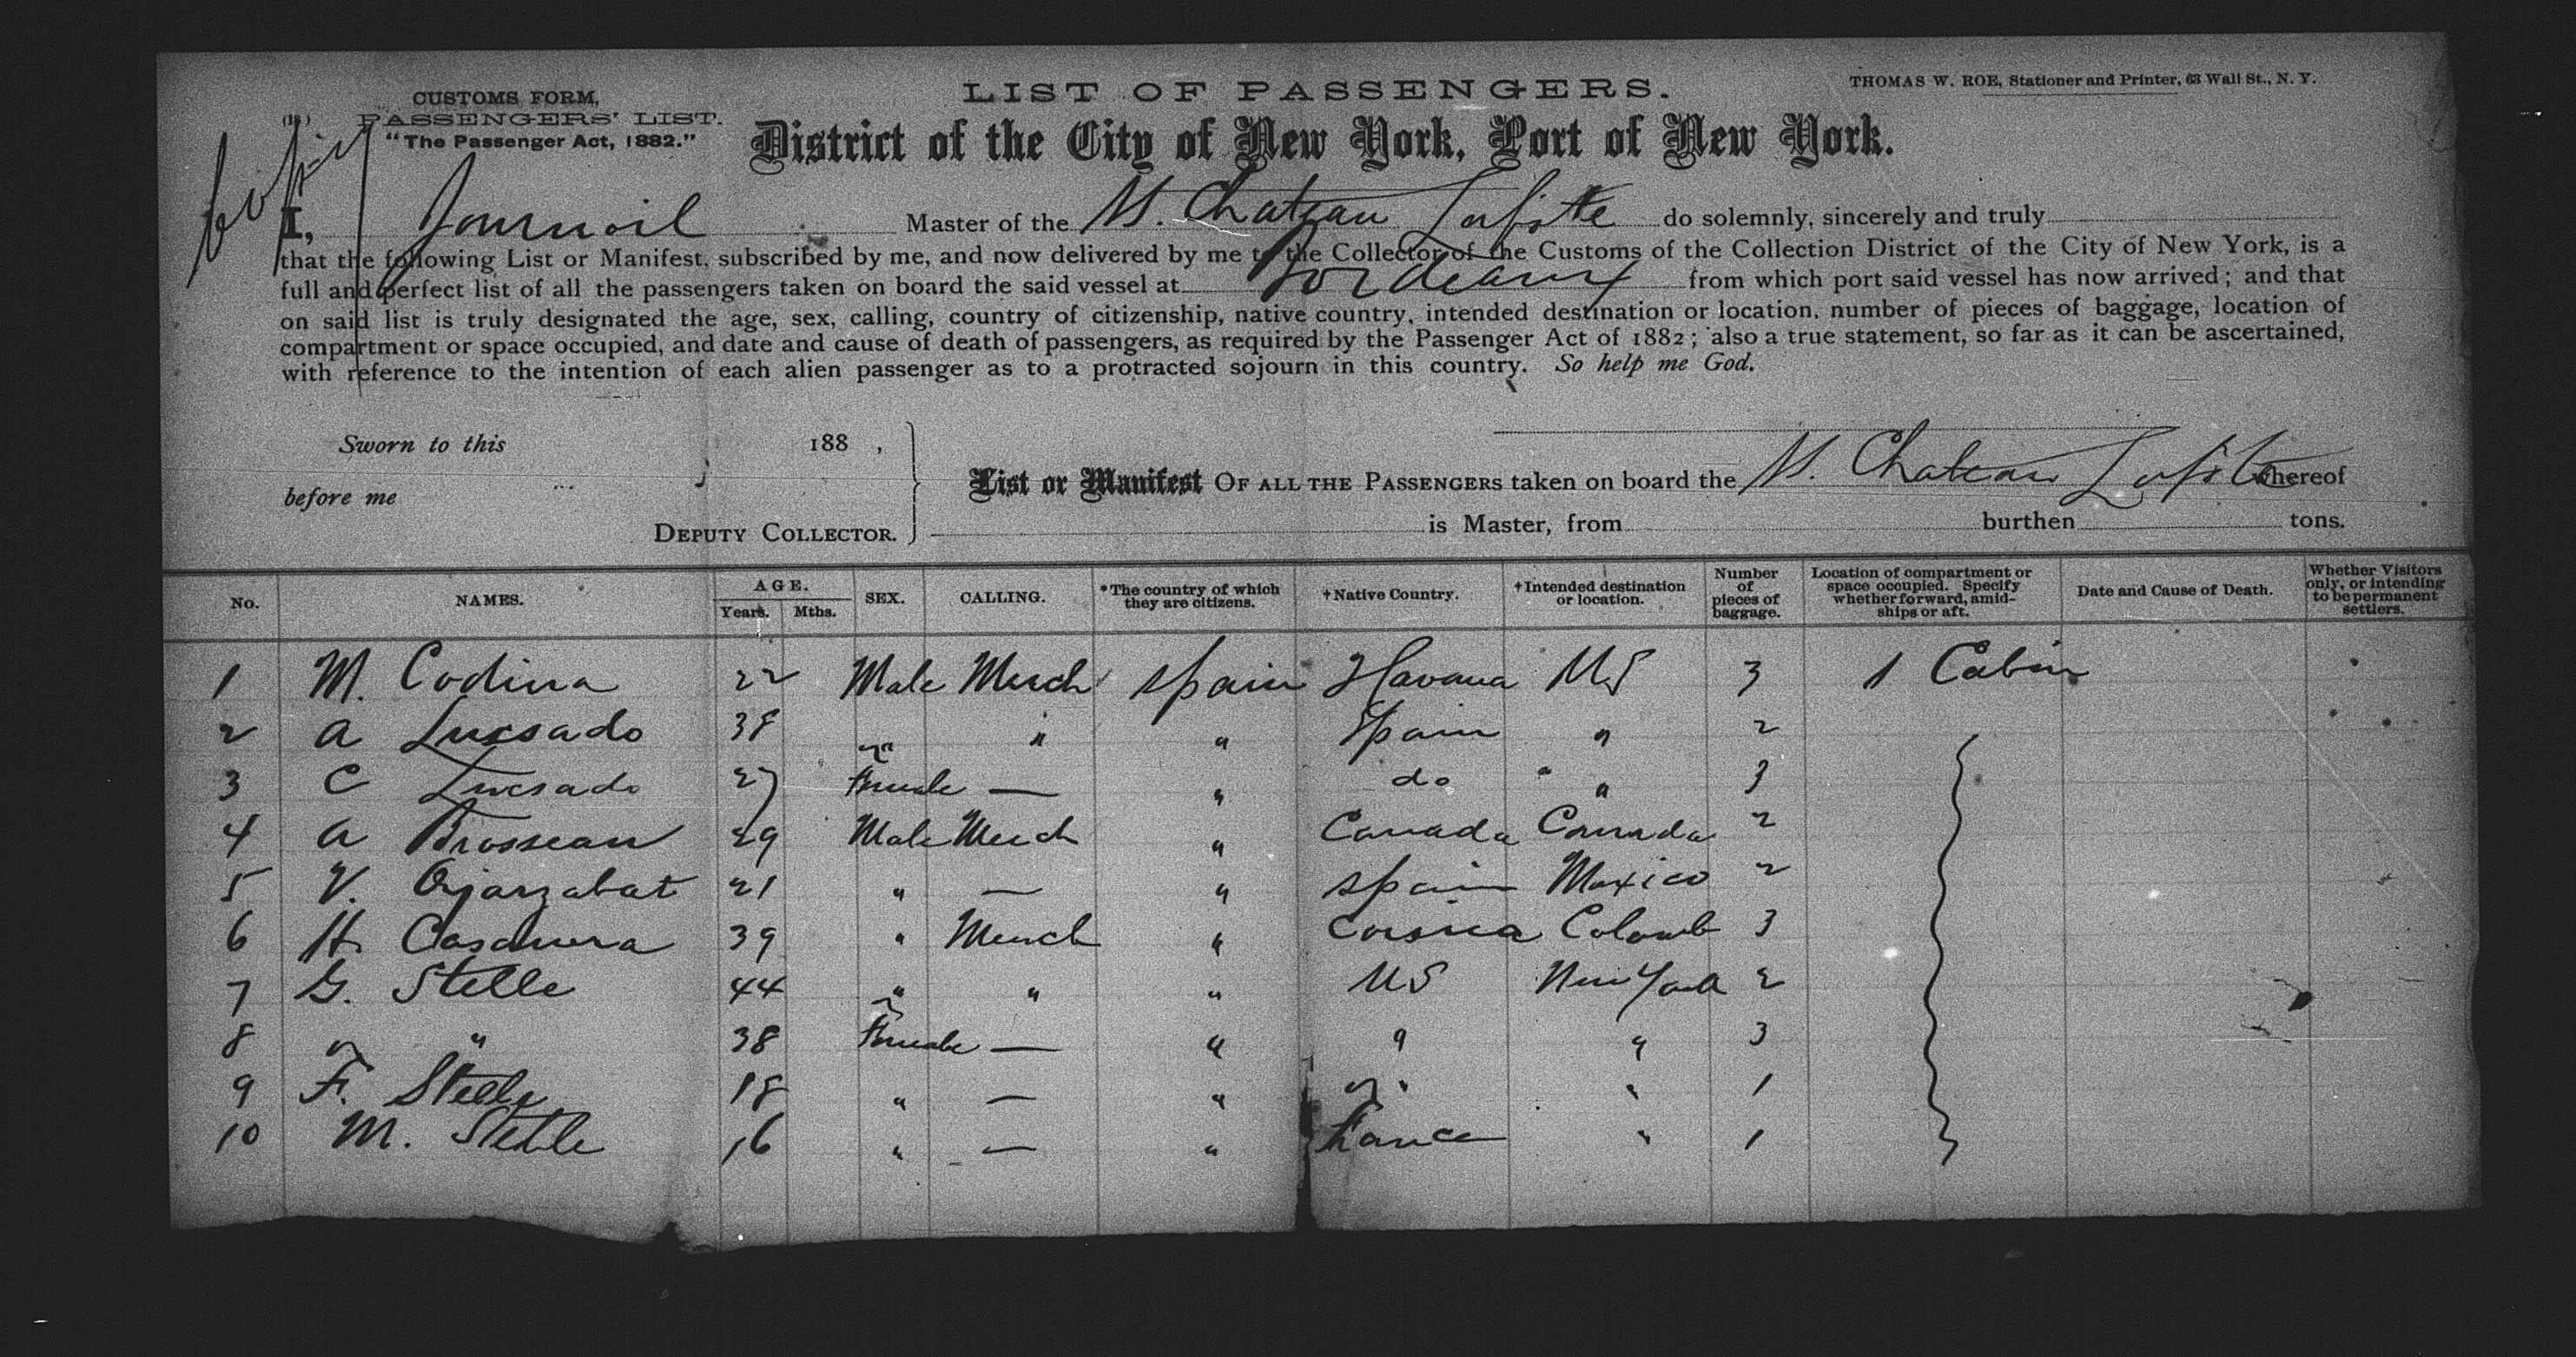 CUSTOMS FORM,
PASSENGERS' LIST.
"The Passenger Act, 1882."
LIST OF PASSENGERS.
THOMAS W. ROE, Stationer and Printer, 63 Wall St., N. Y.
District of the City of New York, Port of New York.
I, Journoil Master of the St. Chateau Lafitte do solemnly, sincerely and truly
that the following List or Manifest, subscribed by me, and now delivered by me to the Collector of the Customs of the Collection District of the City of New York, is a
full and perfect list of all the passengers taken on board the said vessel at Bordeaux from which port said vessel has now arrived; and that
on said list is truly designated the age, sex, calling, country of citizenship, native country, intended destination or location, number of pieces of baggage, location of
compartment or space occupied, and date and cause of death of passengers, as required by the Passenger Act of 1882; also a true statement, so far as it can be ascertained,
with reference to the intention of each alien passenger as to a protracted sojourn in this country. So help me God.
Sworn to this 188 ,
before me
DEPUTY COLLECTOR.
List or Manifest OF ALL THE PASSENGERS taken on board the St. Chateau Lafite whereof
is Master, from burthen tons.
No. NAMES. AGE. Years. Mths. SEX. CALLING. *The country of which they are citizens. †Native Country. †Intended destination or location. Number of pieces of baggage. Location of compartment or space occupied. Specify whether forward, amidships or aft. Date and Cause of Death. Whether Visitors only, or intending to be permanent settlers.
1 M. Codina 22 Male Merch Spain Havana US 3 1 Cabin
2 A Lucsado 38 " " " Spain " 2
3 C Lucsado 27 Female — " do " 3
4 A Brosseau 29 Male Merch " Canada Canada 2
5 V. Ojarzabat 21 " — " Spain Mexico 2
6 H. Casanova 39 " Merch " Corsica Colomb 3
7 G. Stelle 44 " " " US New York 2
8 " " 38 Female — " " " 3
9 F. Stelle 18 " — " " " 1
10 M. Stelle 16 " — " France " 1